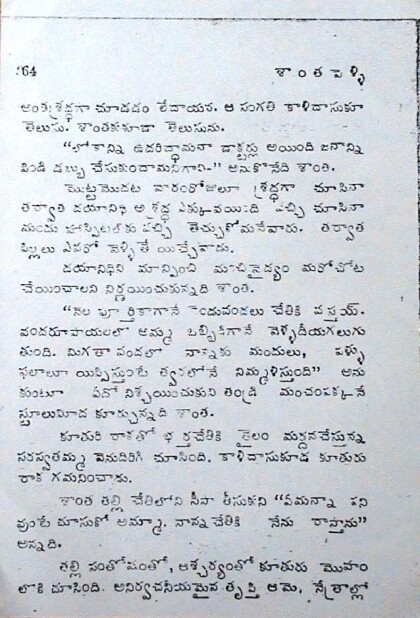 64 శాంత పెళ్ళి
అంత శ్రద్ధగా చూడడం లేదాయన. ఆ సంగతి కాళిదాసుకూ
తెలుసు. శాంతకుకూడా తెలుసును.
“లోకాన్ని ఉదరిద్దామనా డాక్టర్లు అయింది జనాన్ని
పిండి డబ్బు చేసుకుందామనిగాని-” అనుకొనేది శాంత.
మొట్టమొదట వారంరోజులూ శ్రద్ధగా చూసినా
తర్వాత దయానిధి అశ్రద్ధ ఎక్కువయింది వచ్చి చూసినా
మందు హాస్పిటల్‌కు వచ్చి తెచ్చుకోమనేవారు. తర్వాత
పిల్లలు ఎవరో వెళ్ళితే యిచ్చేవాడు.
దయానిధిని మాన్పించి మంచివైద్యం మరోచోట
చేయించాలని నిర్ణయించుకున్నది శాంత.
“నెల పూర్తికాగానే రెండువందలు చేతికి వస్తయ్.
వందరూపాయలలో అమ్మ ఒబ్బిడిగానే వెళ్ళదీయగలుగు
తుంది. మిగతా వందలో నాన్నకు మందులు, పళ్ళు
ఫలాలూ యిప్పిస్తుంటే త్వరలోనే నిమ్మళిస్తుంది” అను
కుంటూ ఏదో నిశ్చయించుకుని తండ్రి మంచంపక్కనే
స్టూలుమీద కూర్చున్నది శాంత.
కూతురి రాకతో భర్తచేతికి తైలం మర్దనచేస్తున్న
సరస్వతమ్మ వెనుదిరిగి చూసింది. కాళిదాసుకూడ కూతురు
రాక గమనించాడు.
శాంత తల్లి చేతిలోని సీసా తీసుకుని “ఏమన్నా పని
వుంటే చూసుకో అమ్మా. నాన్న చేతికి నేను రాస్తాను”
అన్నది.
తల్లి సంతోషంతో, ఆశ్చర్యంతో కూతురు మొహం
లోకి చూసింది. అనిర్వచనీయమైన తృప్తి ఆమె, నేత్రాల్లో